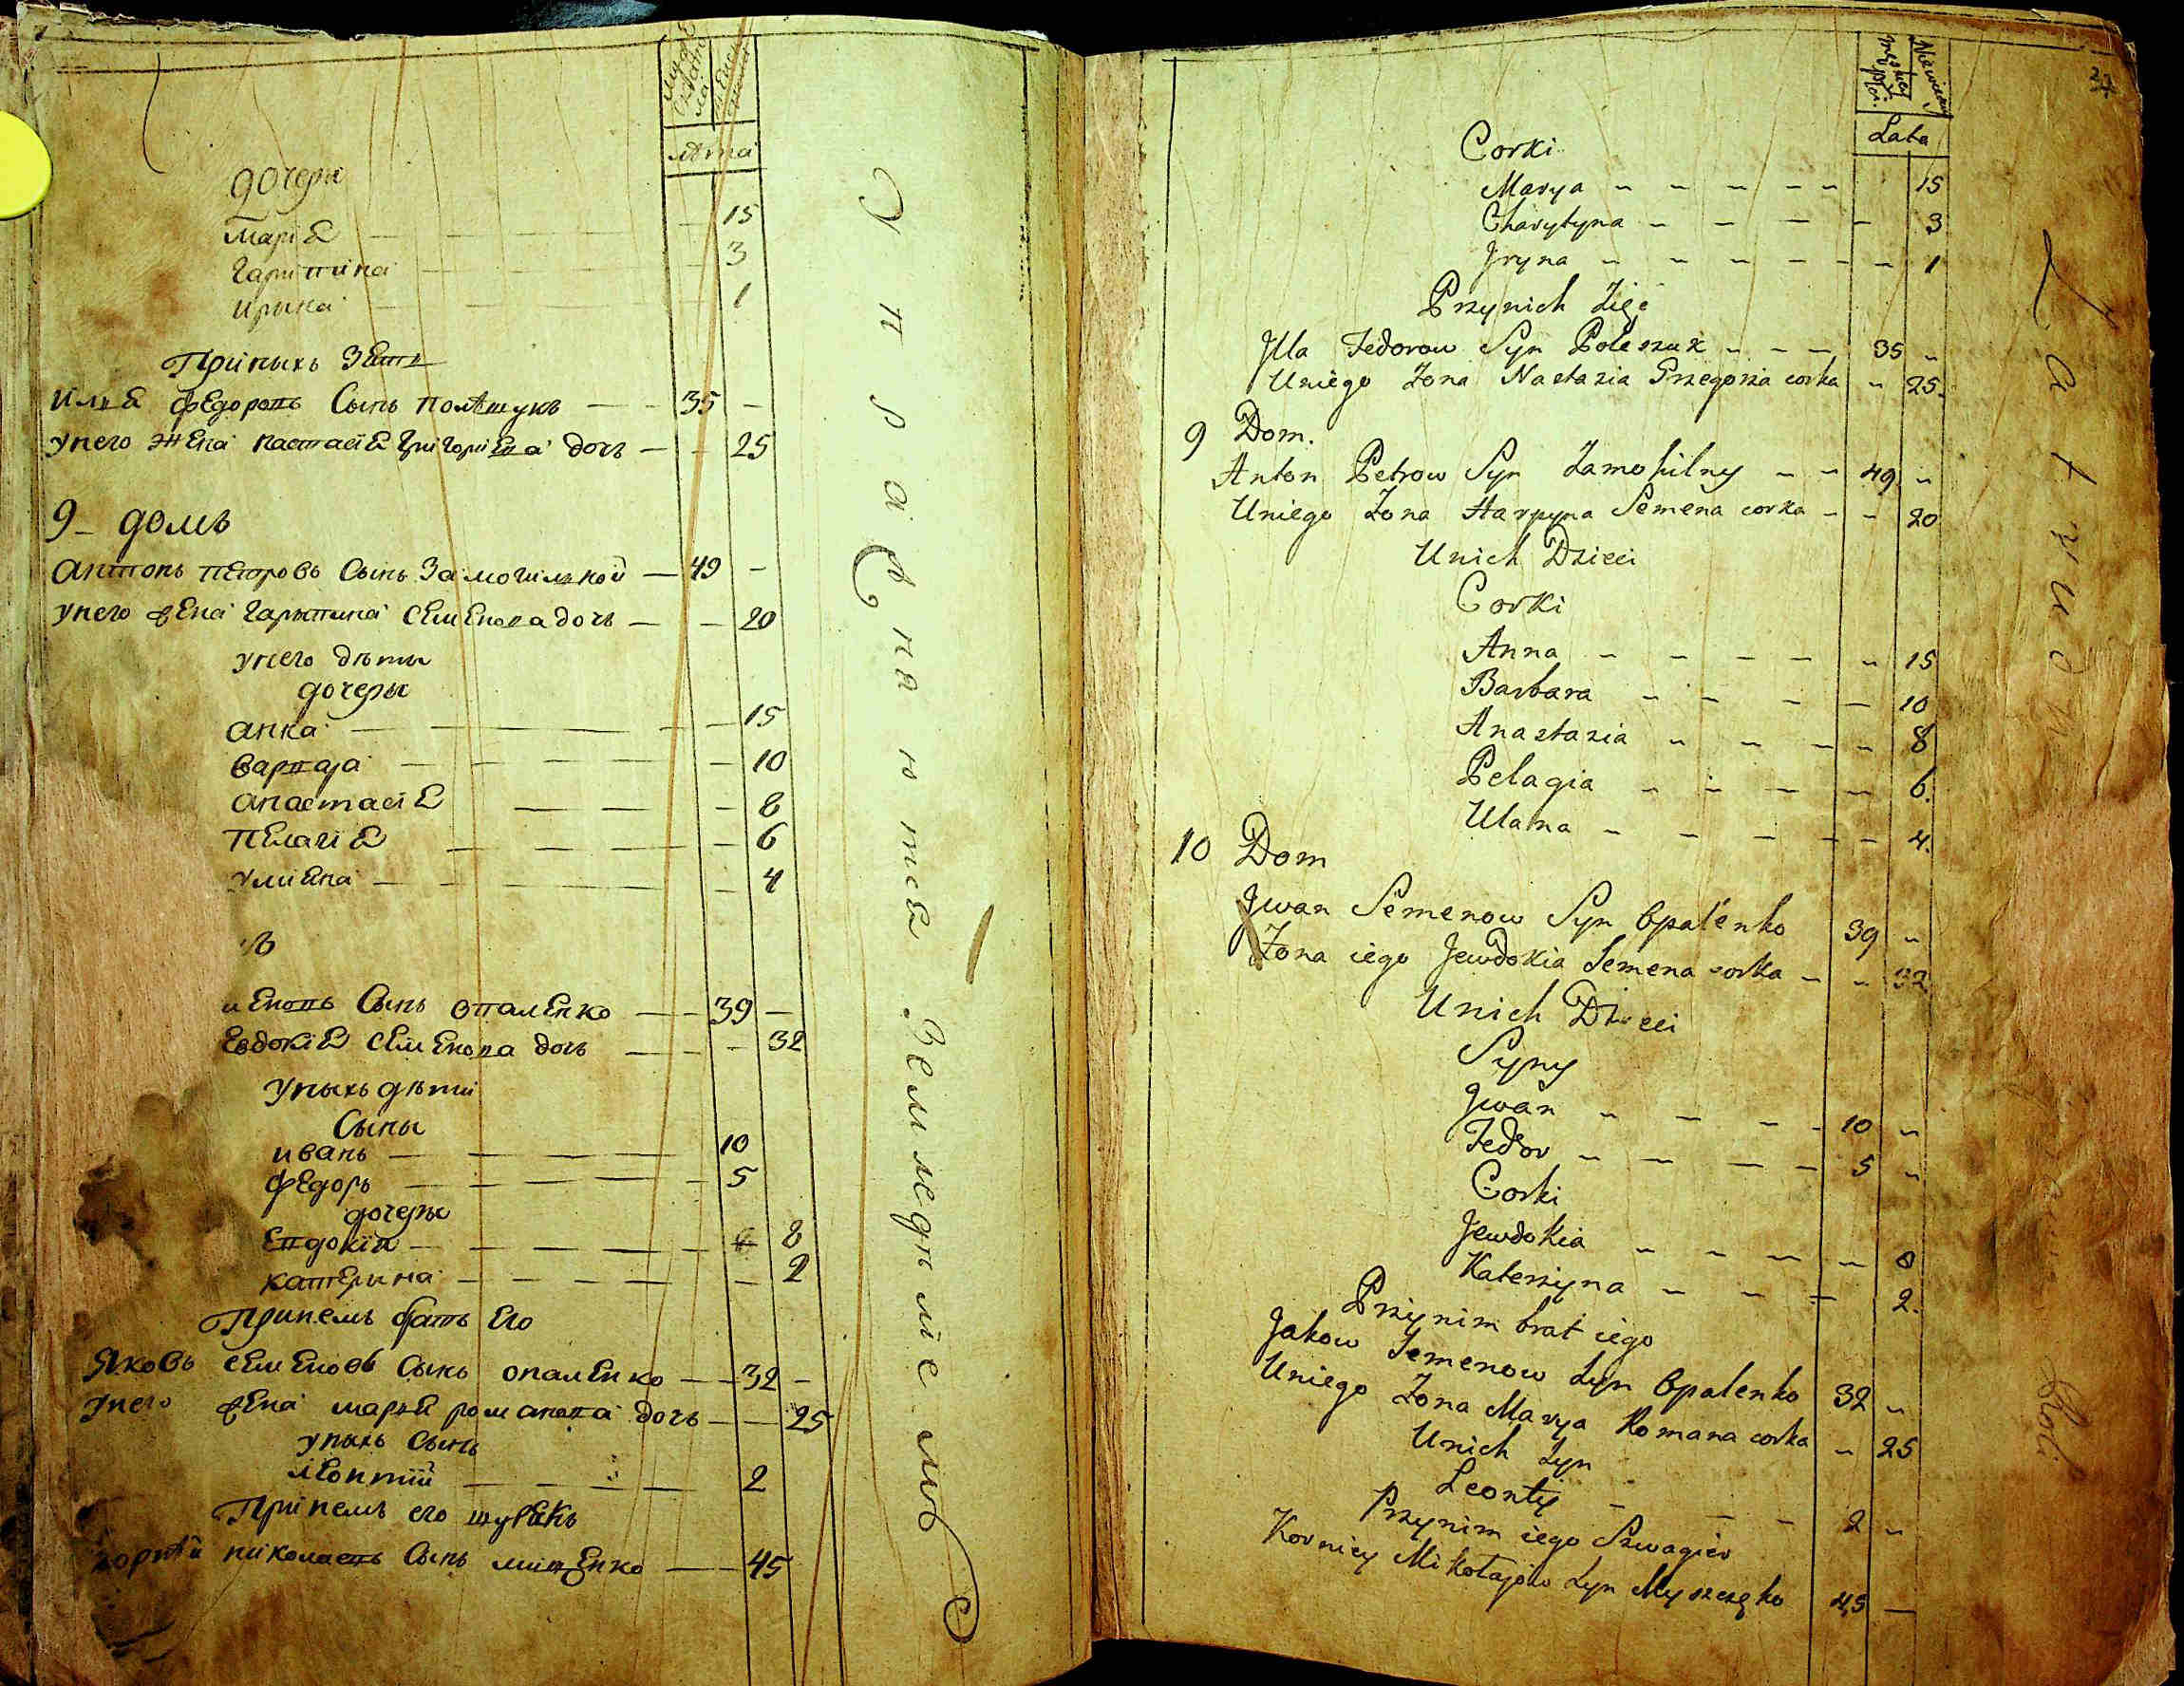 лѣта
дочери
Маріа 15
Гаритина 3
Ирина 1
Принихъ Зять
Илиа Федоровъ Сынъ Полѣщукъ 35 —
Унего жена Настасіа Григоріева дочь — 25
9 — домъ
Антонъ Петровъ Сынъ Замогильной 49 —
Унего жена Гарпина Семенова дочь — 20
Унего дѣти
дочери
Анна 15
Варвара 10
Анастасіа 8
Пелагіа 6
Улиена 4
Сынъ Опаленко 39 —
Евдокіа Семенова дочь — 32
Унихъ дѣти
Сыны
Иванъ 10
Федоръ 5
дочери
Евдокіа 8
Катерина 2
Принемъ братъ его
Яковъ Семеновъ Сынъ Опаленко 32 —
Унего жена Мариа Романова дочь — 25
Унихъ Сынъ
Леонтій 2
Принемъ его шуринъ
Николаевъ Сынъ 45
Lata
Corki
Marya 15
Charytyna 3
Jryna 1
Przynich Zięć
Jlla Fedorow Syn Poleszuk 35 „
Uniego Żona Nastazia Grzegorza corka „ 25.
9 Dom.
Anton Petrow Syn Zamohilny 49 „
Uniego Żona Harpyna Semena corka „ 20
Unich Dzieci
Corki
Anna 15
Barbara 10
Anastazia 8
Pelagia 6.
Ulana 4.
10 Dom
Jwan Semenow Syn Opalenko 39 „
Żona iego Jewdokia Semena corka „ 32
Unich Dzieci
Syny
Jwan 10 „
Fedor 5 „
Corki
Jewdokia 8
Katerzyna 2.
Przynim brat iego
Jakow Semenow Syn Opalenko 32 „
Uniego Żona Marya Romana corka „ 25
Unich Syn
Leonty 2 „
Przynim iego Szwagier
Korniey Mikołajow Syn 45 —